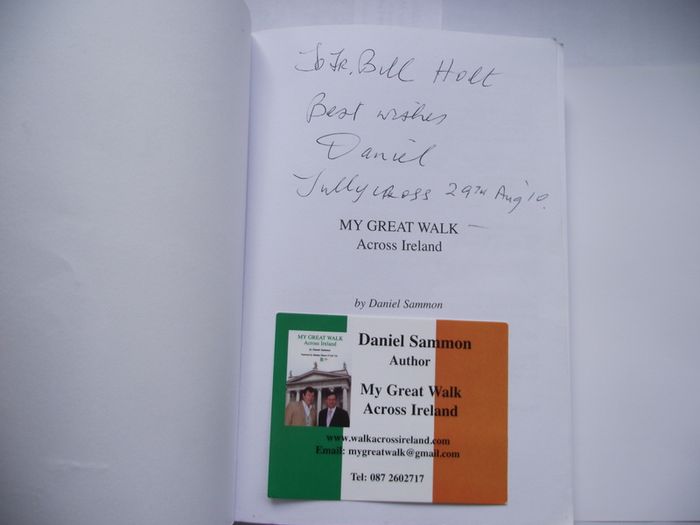 To Fr. Bill Holt
Best wishes
Daniel
Tullycross 29TH Aug '10.
MY GREAT WALK
Across Ireland
by Daniel Sammon
MY GREAT WALK
Across Ireland
by Daniel Sammon
Daniel Sammon
Author
My Great Walk
Across Ireland
www.walkacrossireland.com
Email: mygreatwalk@gmail.com
Tel: 087 2602717